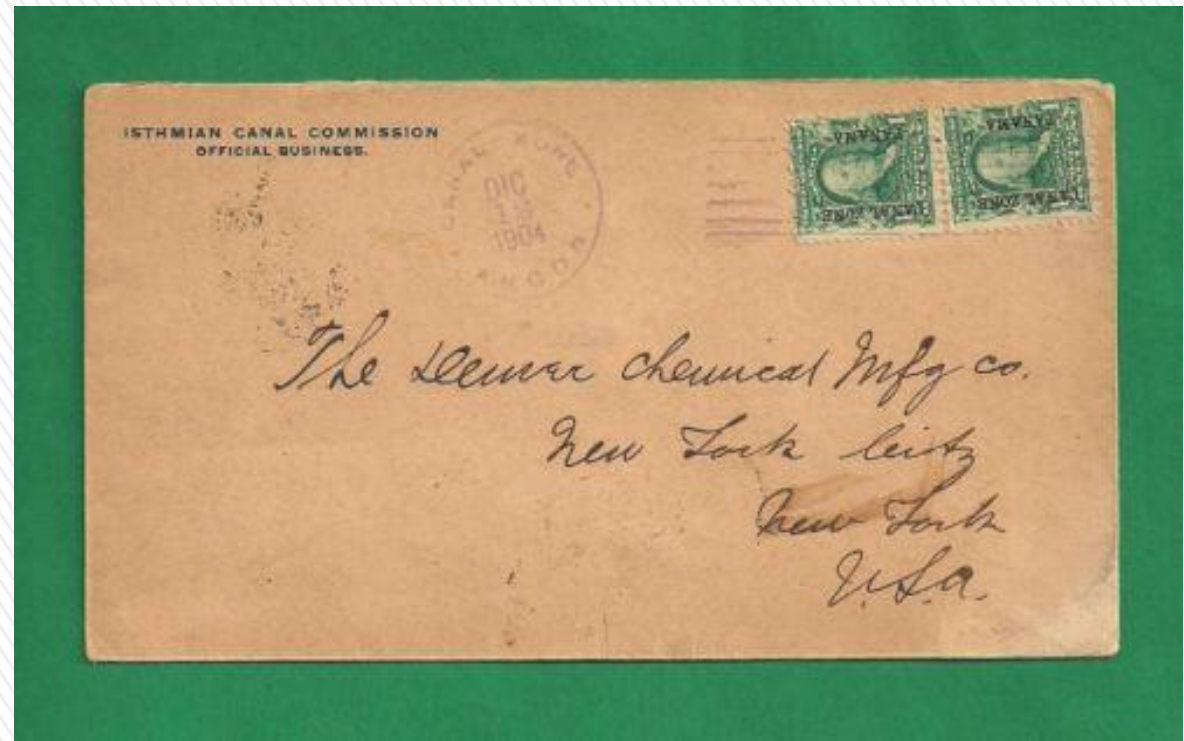 ISTHMIAN CANAL COMMISSION
OFFICIAL BUSINESS.
CANAL ZONE
ANCON
DIC
1904
PANAMA
CANAL ZONE
PANAMA
CANAL ZONE
The Denver Chemical Mfg co.
New York City
New York
U.S.a.